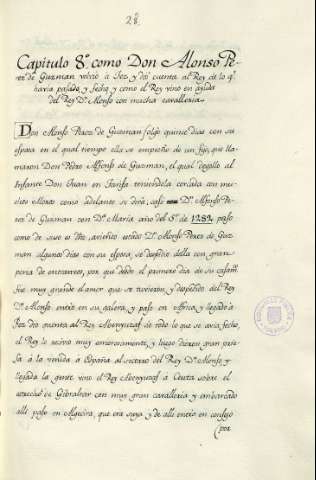 28
Capitulo 8º. como Don Alonso Pe-
rez de Guzman volvió à Fez, y dió cuenta al Rey de lo qe.
havia pasado, y fecho, y como el Rey vino en ayuda
del Rey Dn. Alonso con mucha cavalleria.
Don Alonso Perez de Guzman folgó quince dias con su
esposa en el qual tiempo ella se empreñó de un fijo, que lla-
maron Don Pedro Alfonso de Guzman, el qual degolló el
Infante Don Juan en Tarifa teniendola cercada con mu-
chos Moros como adelante se dirá, casó Dn. Alfonso Pe-
rez de Guzman con Dª. Maria año del Sr. de 1282, pasó
como de suso es dho, asi visto estubo Dn. Alonso Perez de Guz-
man algunos dias con su esposa, se despidió della con gran
pena de entrambos, por que desde el primero dia de su casamto.
fue muy grande el amor que se tuvieron, y despedido del Rey
Dn. Alonso entró en su galera, y pasó en Africa, y llegado à
Fez dió cuenta al Rey Abenyuzaf de todo lo que se avia fecho,
el Rey lo recivió muy amorosamente, y luego dieron gran prie-
sa à la venida à España al socorro del Rey Dn. Alonso, y
llegada la gente vino el Rey Abenyuzaf à Ceuta sobre el
estrecho de Gibraltar con muy gran cavalleria, y embarcado
alli pasó en Algecira, que era suya, y de alli entró en consejo
(por